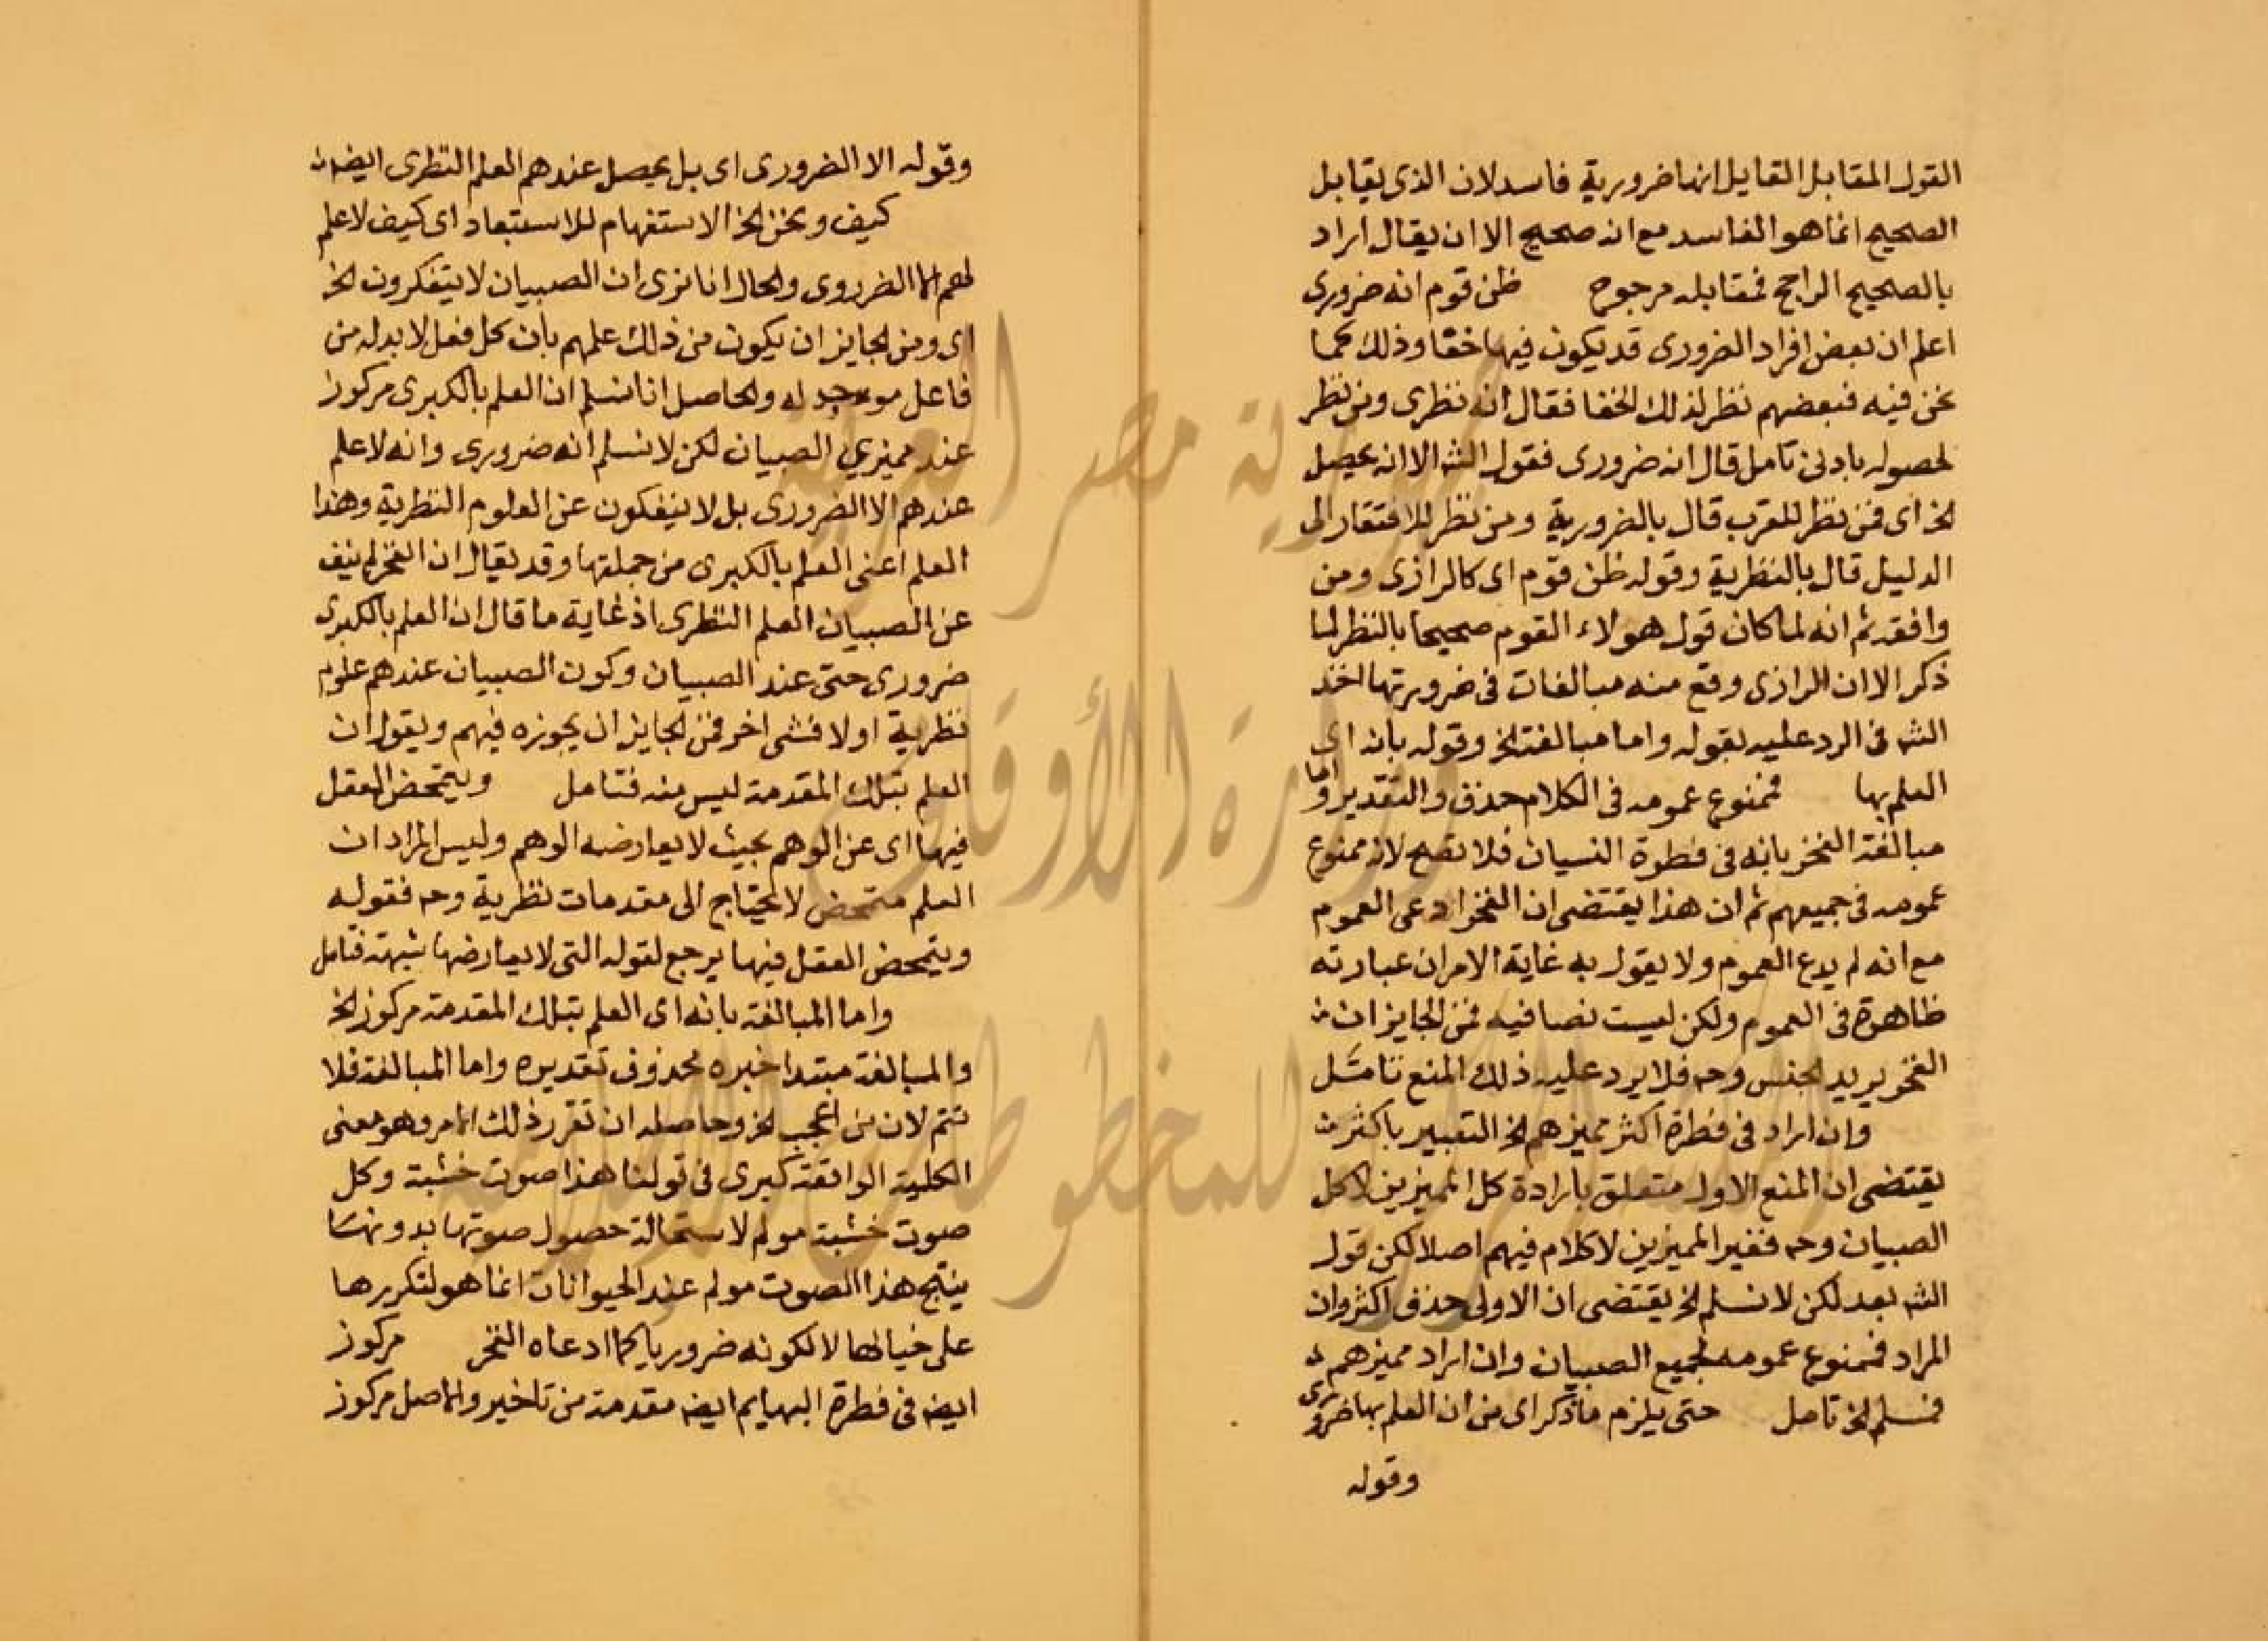 القول المقابل القايل انها ضرورية فاسد لان الذى يقابل
الصحيح انما هو الفاسد مع انه صحيح الا ان يقال اراد
بالصحيح الراجح فمقابله مرجوح ظن قوم انه ضرورى
اعلم ان بعض افراد الضرورى قد يكون فيها خفا وذلك كما
نحن فيه فبعضهم نظر لذلك الخفا فقال انه نظرى ومن نظر
لحصوله بادنى تامل قال انه ضرورى فقول الشه الا انه يحصل
الخ اى فمن نظر للقرب قال بالضرورية ومن نظر للافتقار الى
الدليل قال بالنظرية وقوله ظن قوم اى كالرازى ومن
وافقه ثم انه لما كان قول هولاء القوم صحيحا بالنظر لما
ذكر الا ان الرازى وقع منه مبالغات فى ضروريتها اخذ
الشه فى الرد عليه بقوله واما مبالغته الخ وقوله بانه اى
العلم بها فممنوع عمومه فى الكلام حذف والتقدير واما
مبالغة الفخر بانه فى فطرة النسيان فلا تصح لانه ممنوع
عمومه فى جميعهم ثم ان هذا يقتضى ان الفخر ادعى العموم
مع انه لم يدع العموم ولا يقول به غاية الامر ان عبارته
ظاهرة فى العموم ولكن ليست نصا فيه فمن الجايز ان
الفخر يريد الجنس وحه فلا يرد عليه ذلك المنع تامل
وان اراد فى فطرة اكثر مميزهم الخ التعبير باكثر
يقتضى ان المنع الاول متعلق بارادة كل المميزين لا كل
الصبيان وحه فغير المميزين لا كلام فيهم اصلا لكن قول
الشه بعد لكن لا نسلم الخ يقتضى ان الاولى حذف اكثر وان
المراد فممنوع عمومه لجميع الصبيان وان اراد مميزهم
فمسلم الخ تامل حتى يلزم ما ذكر اى من ان العلم بها ضرورى
وقوله
وقوله الا الضرورى اى بل يحصل عندهم العلم النظرى ايضه
كيف ونحن الخ الاستفهام للاستبعاد اى كيف لا علم
لهم الا الضروروى والحال انا نرى ان الصبيان لا يتفكرون الخ
اى ومن الجايز ان يكون من ذلك علمهم بان كل فعل لا بد له من
فاعل موجد له والحاصل انا نسلم ان العلم بالكبرى مركوز
عند مميزي الصبيان لكن لا نسلم انه ضرورى وانه لا علم
عندهم الا الضرورى بل لا ينفكون عن العلوم النظرية وهذا
العلم اعنى العلم بالكبرى من جملتها وقد يقال ان الفخر لم ينف
عن الصبيان العلم النظرى اذ غاية ما قال ان العلم بالكبرى
ضرورى حتى عند الصبيان وكون الصبيان عندهم علوم
نظرية اولا فشى اخر فمن الجايز ان يجوزه فيهم ويقول ان
العلم بتلك المقدمة ليس منه فتامل ويتمحض العقل
فيها اى عن الوهم بحيث لا يعارضه الوهم وليس المراد ان
العلم متمحض لا يحتاج الى مقدمات نظرية وحه فقوله
ويتمحض العقل فيها يرجع لقوله التى لا يعارضها شبهة فتامل
واما المبالغة بانه اى العلم بتلك المقدمة مركوز الخ
والمبالغة مبتدا خبره محذوف تقديره واما المبالغة فلا
تتم لان من اعجب الخ وحاصله ان تقرر ذلك الامر وهو معنى
الكلية الواقعة كبرى فى قولنا هذا صوت خشبة وكل
صوت خشبة مولم لاستحالة حصول صوتها بدونها
ينتج هذا الصوت مولم عند الحيوانات انما هو لتكررها
على خيالها لا لكونه ضروريا كما ادعاه الفخر مركوز
ايضه فى فطرة البهايم ايضه مقدمة من تاخير والاصل مركوز
جمهورية مصر العربية
وزارة الأوقاف